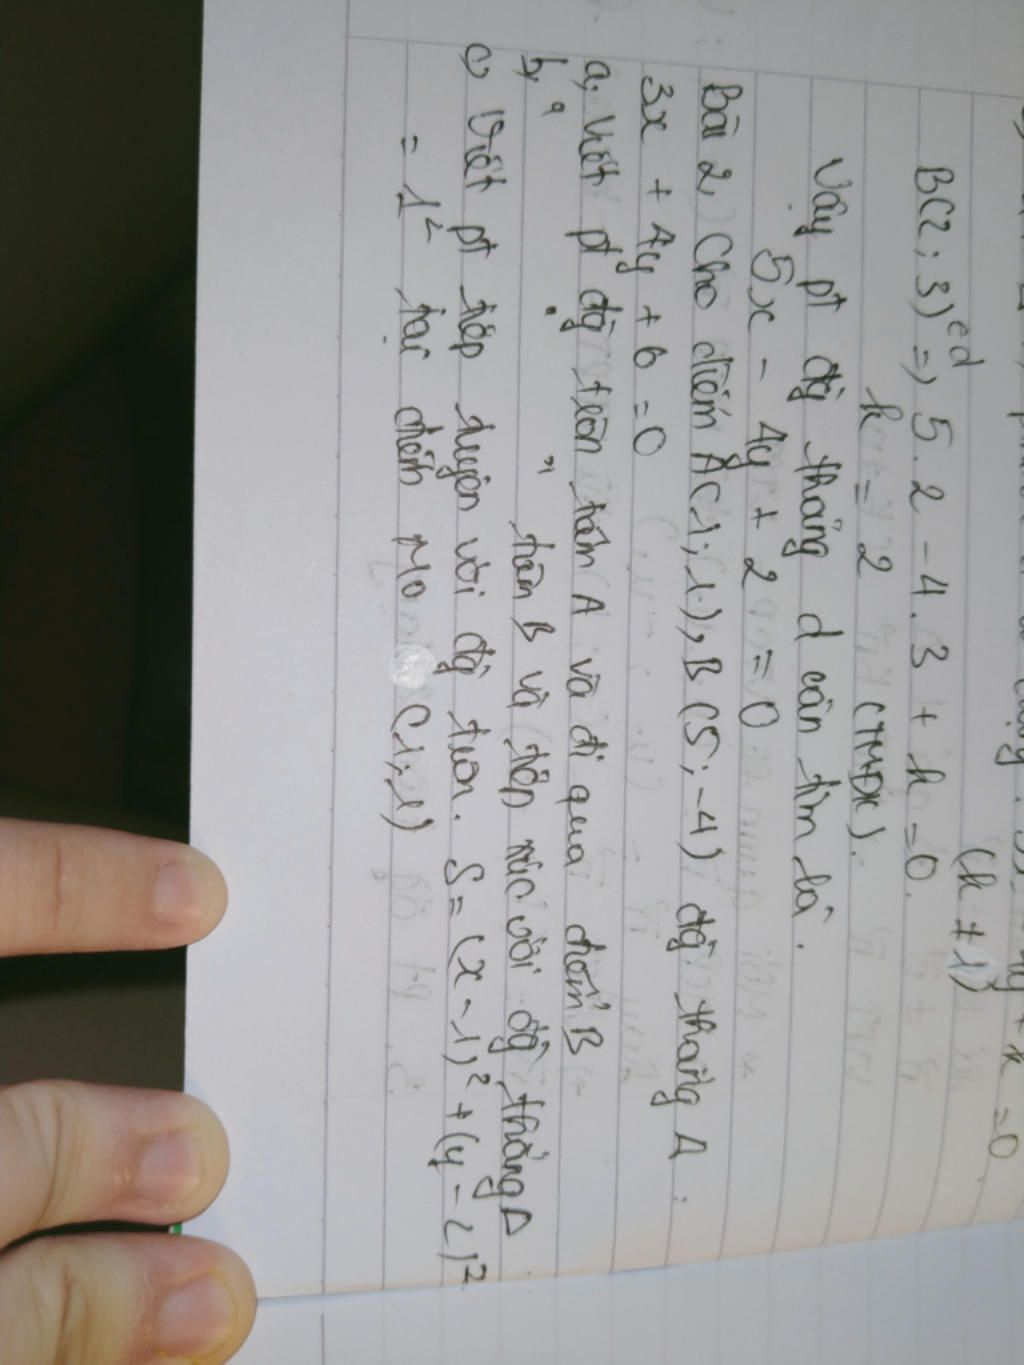 x = 0
(k ≠ 1)
B(2; 3) ∈ d => 5. 2 - 4. 3 + k = 0.
k = 2 (TMĐK).
Vậy pt đg thẳng d cần tìm là.
5x - 4y + 2 = 0
Bài 2, Cho điểm A(1; 1), B(5; -4) đg thẳng Δ:
3x + 4y + 6 = 0
a, Viết pt đg tròn tâm A và đi qua điểm B
b, " " tâm B và tiếp xúc với đg thẳng Δ
c, Viết pt tiếp tuyến với đg tròn. S = (x - 1)² + (y - 2)²
= 1² tại điểm M0 (1; 1)